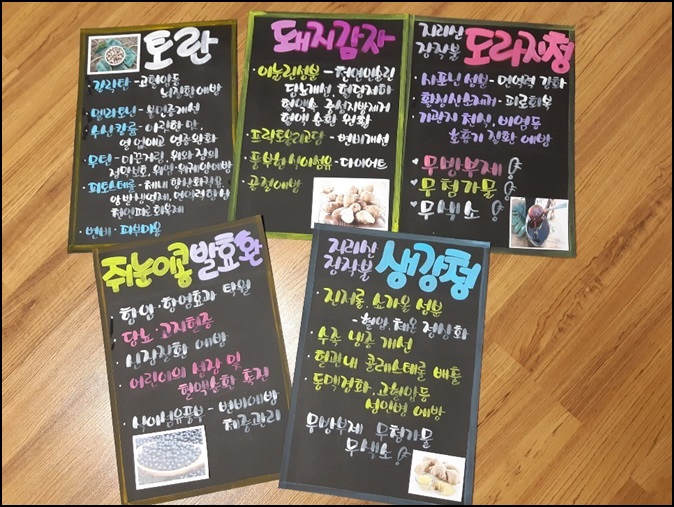 토란
갈락탄 - 고혈압, 동
뇌질환예방
멜라토닌 - 불면증개선
수산칼륨 - 야릿한 맛,
열 없애고 염증완화
무틴 - 미끈거림, 위와 장의
점막보호, 위염·위궤양예방
변비·피부미용
돼지감자
이눌린성분 - 천연인슐린
당뇨개선, 혈당저하
혈액속 중성지방제거
혈액 순환 원활
프락토올리고당 - 변비개선
풍부한 식이섬유 - 다이어트
골절예방
지리산
장작불
도라지청
사포닌 성분 - 면역력 강화
활성산소제거 - 피로회복
기관지 천식, 비염등
호흡기 질환 예방
무방부제
무첨가물
무색소
쥐눈이콩발효환
항암·항염효과 탁월
당뇨·고지혈증
신장질환 예방
어린이의 성장 및
혈액순환 촉진
식이섬유풍부 - 변비예방
체중관리
지리산
장작불
생강청
진저롤, 쇼가올 성분
- 혈압, 체온 정상화
수족 냉증 개선
혈관내 콜레스테롤 배출
동맥경화, 고혈압등
성인병 예방
무방부제 무첨가물
무색소